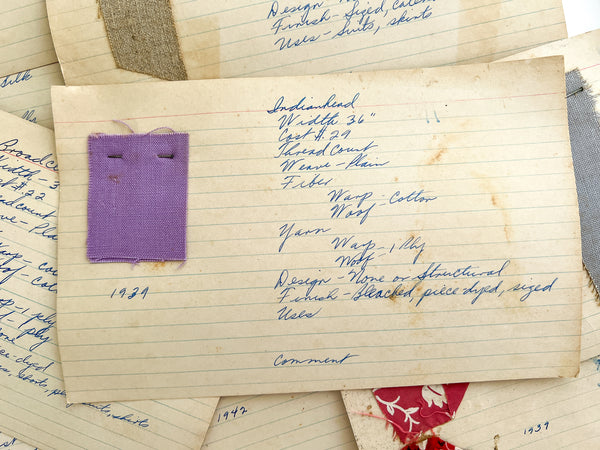 Design - No
Finish - Sized, calen
Uses - Suits, skirts
Silk
Indianhead
Width 36"
Cost #.29
Thread Count
Weave - Plain
Fiber
Warp - Cotton
Woof -
Yarn
Warp - 1 Ply
Woof -
Design - None or Structural
Finish - Bleached, piece-dyed, sized
Uses
Comment
1939
Broadcl
Width - 3
st #.22
eadcount
ave - Pla
Warp - co
oof cot
rp - 1 ply
- 1 ply
one
dyed
suits, shirts
1942
1939